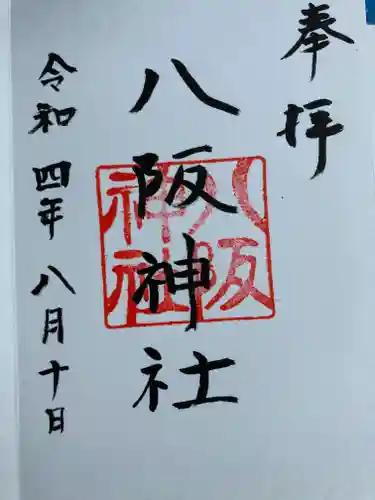 奉拝
八阪神社
八阪
神社
令和四年八月十日